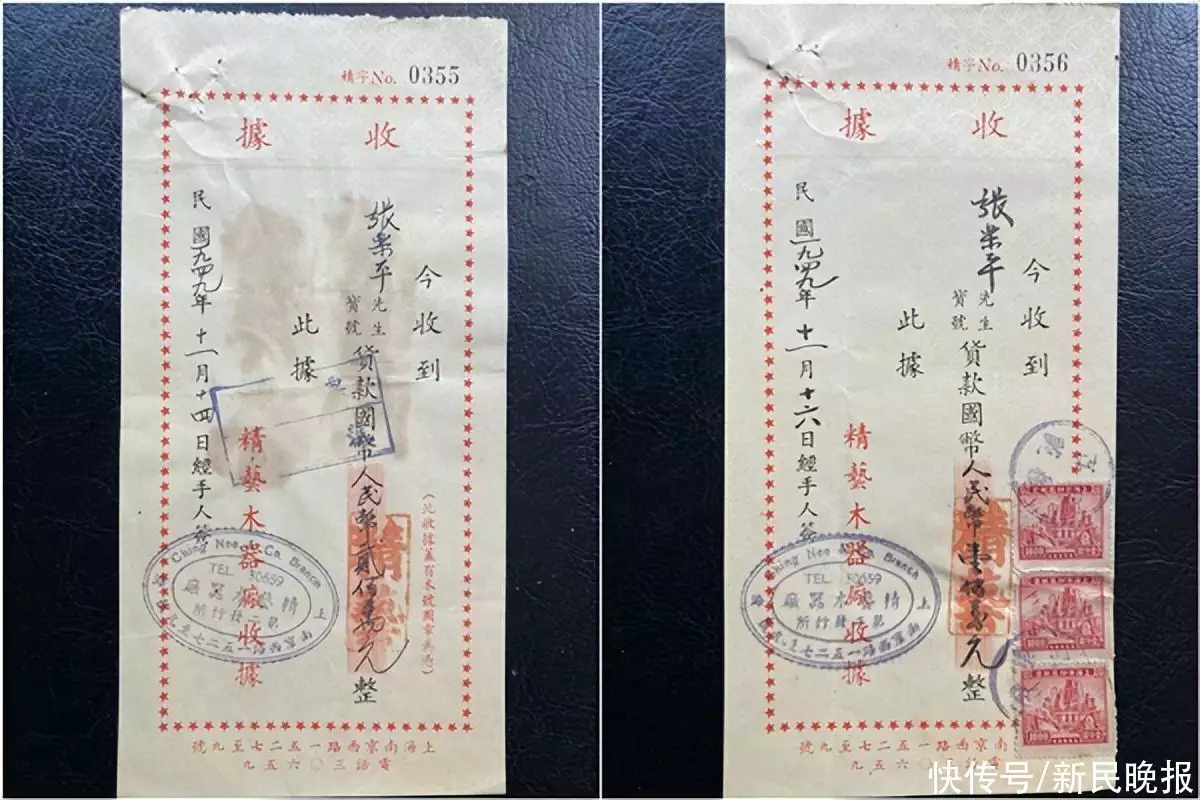 精字No. 0355
收據
今收到
張榮平先生寶號貨款國幣人民幣貳佰萬元整
此據
精藝木器廠收據
民國一九四九年十一月十四日經手人簽
(此收據蓋有本號圖章為憑)
Ching Nee & Co. Branch
TEL 30659
精藝木器廠
第二發行所
上海南京西路一五二七至九號
上海南京西路一五二七至九號
電話三〇六五九
精字No. 0356
收據
今收到
張榮平先生寶號貨款國幣人民幣壹佰萬元整
此據
精藝木器廠收據
民國一九四九年十一月十六日經手人簽
Ching Nee & Co. Branch
TEL 30659
精藝木器廠
第二發行所
南京西路一五二七至九號
電話三〇六五九
快传号/新民晚报